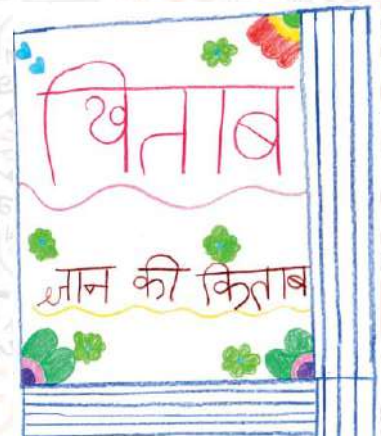 खिताब
ज्ञान की किताब